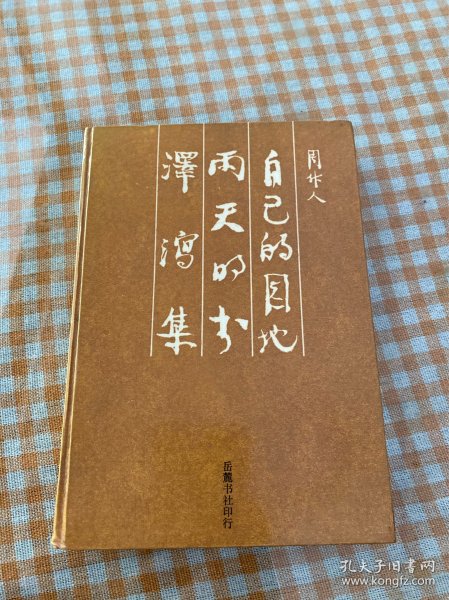 周作人
自己的园地
雨天的书
澤瀉集
岳麓书社印行
孔夫子旧书网
www.kongfz.com